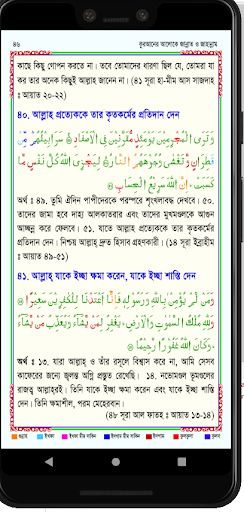 ৪৬ কুরআনের আলোকে জান্নাত ও জাহান্নাম
কাছে কিছু গোপন করতে না। তবে তোমাদের ধারণা ছিল যে, তোমরা যা
কর তার অনেক কিছুই আল্লাহ জানেন না। (৪১ সূরা হা-মীম আস সাজদাহ
: আয়াত ২০-২২)
৪০. আল্লাহ প্রত্যেককে তার কৃতকর্মের প্রতিদান দেন
وَتَرَى الْمُجْرِمِينَ يَوْمَئِذٍ مُّقَرَّنِينَ فِي الْأَصْفَادِ سَرَابِيلُهُم مِّن
قَطِرَانٍ وَتَغْشَى وُجُوهَهُمُ النَّارُ لِيَجْزِيَ اللَّهُ كُلَّ نَفْسٍ مَّا
كَسَبَتْ إِنَّ اللَّهَ سَرِيعُ الْحِسَابِ
অর্থ : ৪৯. তুমি ঐদিন পাপীদেরকে পরস্পরে শৃংখলাবদ্ধ দেখবে। ৫০.
তাদের জামা হবে দাহ্য আলকাতরার এবং তাদের মুখমণ্ডলকে আগুন
আচ্ছন্ন করে ফেলবে। ৫১. যাতে আল্লাহ প্রত্যেককে তার কৃতকর্মের
প্রতিদান দেন। নিশ্চয় আল্লাহ দ্রুত হিসাব গ্রহণকারী। (১৪ সূরা ইব্রাহীম
: আয়াত ৪৯-৫১)
৪১. আল্লাহ যাকে ইচ্ছা ক্ষমা করেন, যাকে ইচ্ছা শাস্তি দেন
وَمَن لَّمْ يُؤْمِن بِاللَّهِ وَرَسُولِهِ فَإِنَّا أَعْتَدْنَا لِلْكَافِرِينَ سَعِيرًا
وَلِلَّهِ مُلْكُ السَّمَوَاتِ وَالْأَرْضِ يَغْفِرُ لِمَن يَشَاءُ وَيُعَذِّبُ مَن يَشَاءُ
وَكَانَ اللَّهُ غَفُورًا رَّحِيمًا
অর্থ : ১৩. যারা আল্লাহ ও তাঁর রসূলে বিশ্বাস করে না, আমি সেসব
কাফেরের জন্যে জ্বলন্ত অগ্নি প্রস্তুত রেখেছি। ১৪. নভোমণ্ডল ভূমণ্ডলের
রাজত্ব আল্লাহ্‌রই। তিনি যাকে ইচ্ছা ক্ষমা করেন এবং যাকে ইচ্ছা শাস্তি
দেন। তিনি ক্ষমাশীল, পরম মেহেরবান।
(৪৮ সূরা আল ফাতহ : আয়াত ১৩-১৪)
গুন্নাহ ইখফা ইখফা মীম সাকিন ইদগাম মীম সাকিন ইদগাম কলকলা